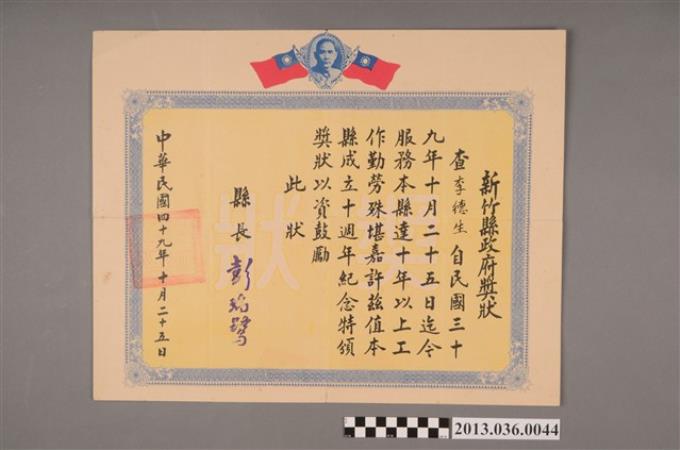 新竹縣政府獎狀
查李德生自民國三十
九年十月二十五日迄今
服務本縣達十年以上工
作勤勞殊堪嘉許茲值本
縣成立十週年紀念特頒
獎狀以資鼓勵
此狀
縣長 彭瑞鷺
中華民國四十九年十月二十五日
獎狀
2013.036.0044